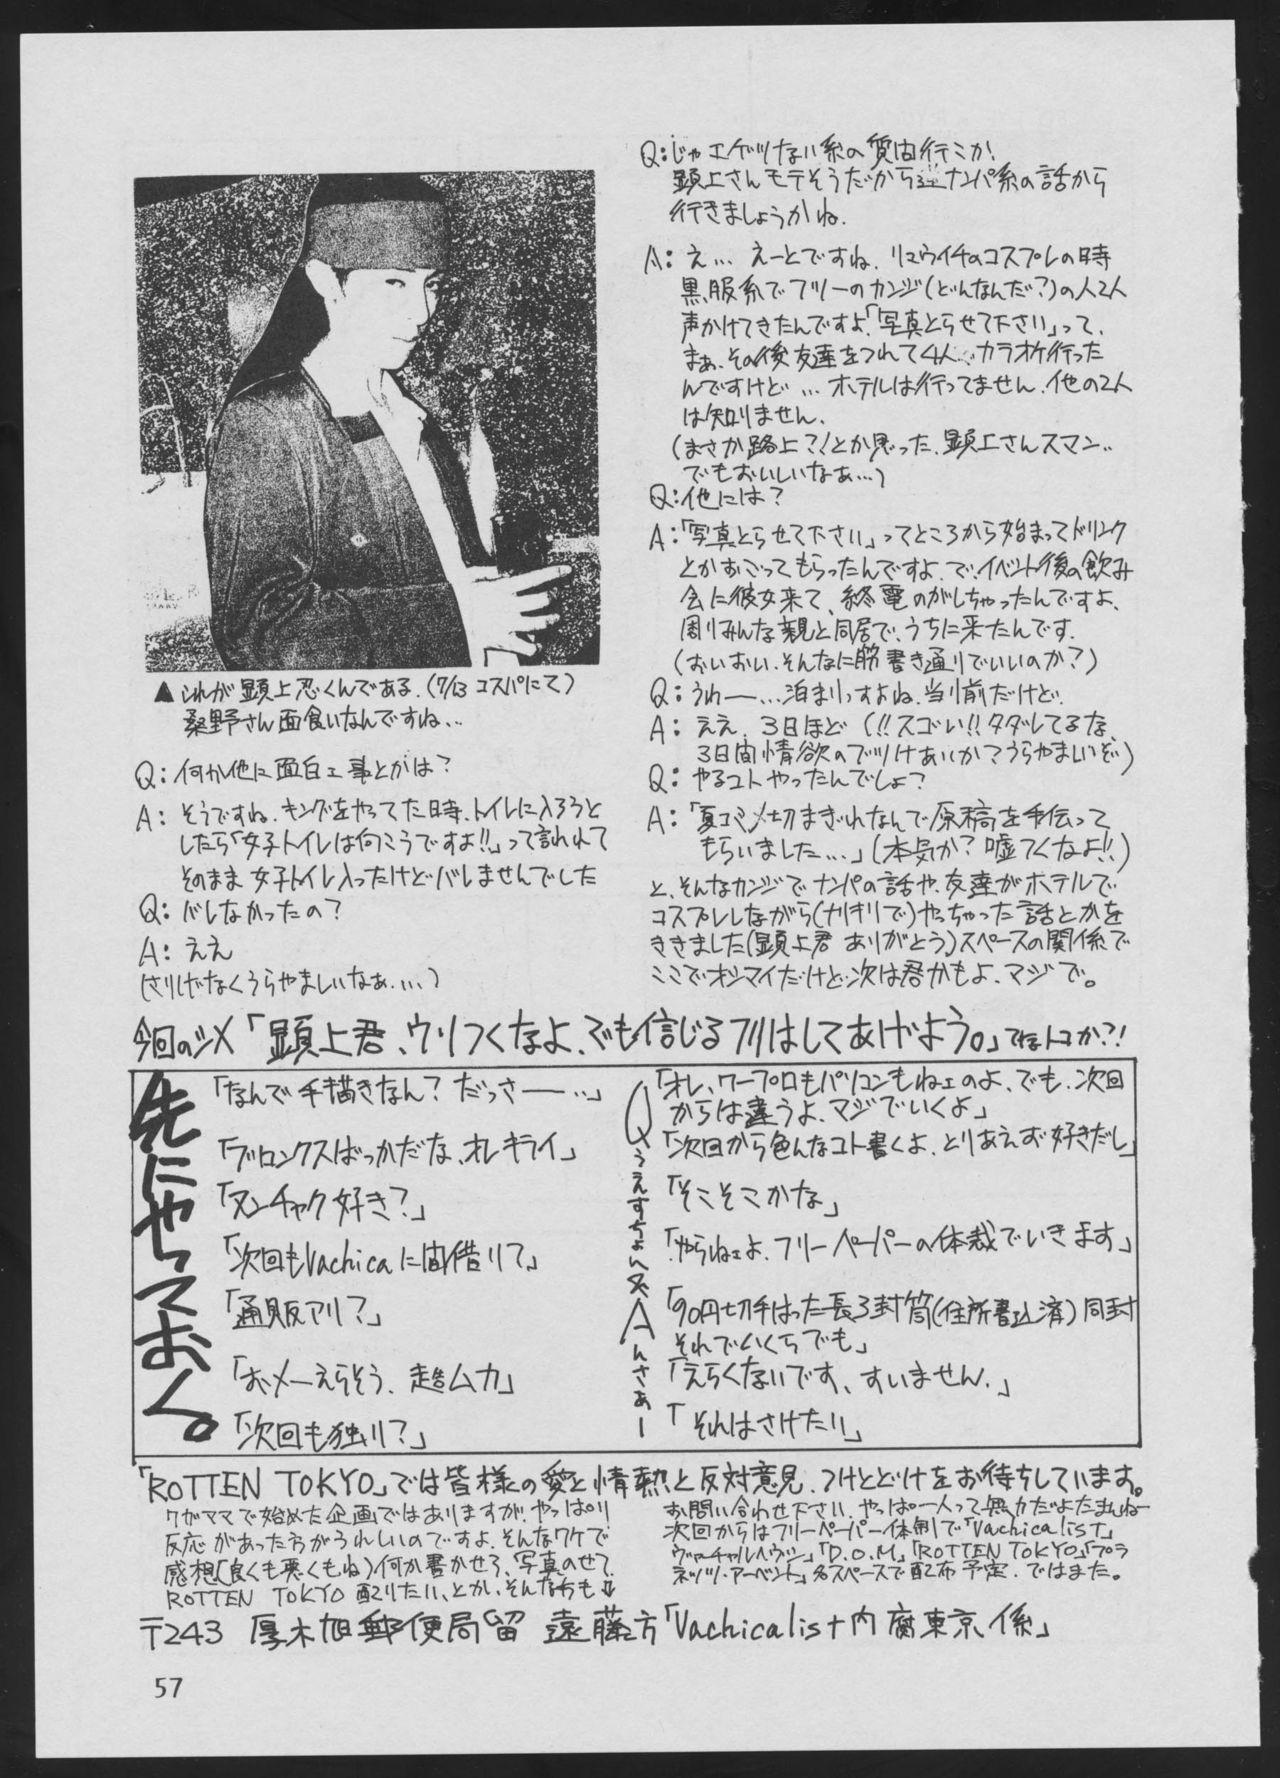 ▲これが顕上忍くんである。(7/13 コスパにて)
桑野さん面食いなんですね…
Q:何か他に面白エ事とかは?
A:そうですね、キングをやってた時、トイレに入ろうと
したら「女子トイレは向こうですよ!!」って言われて
そのまま女子トイレ入ったけどバレませんでした
Q:バレなかったの?
A:ええ
(さりげなくうらやましいなぁ…)
Q:じゃエゲツない系の質問行こか!
顕上さんモテそうだから逆ナンパ系の話から
行きましょうかね.
A:え… えーとですね、リュウイチのコスプレの時
黒服系でフツーのカンジ(どんなんだ?)の人2人
声かけてきたんですよ「写真とらせて下さい」って、
まぁ、その後友達をつれて4人、カラオケ行った
んですけど…ホテルは行ってません、他の2人
は知りません.
(まさか路上?!とか思った、顕上さんスマン..
でもおいしいなぁ…)
Q:他には?
A:「写真とらせて下さい」ってところから始まってドリンク
とかおごってもらったんですよ、で、イベント後の飲み
会に彼女来て、終電のがしちゃったんですよ、
周りみんな親と同居で、うちに来たんです.
(おいおい、そんなに筋書き通りでいいのか?)
Q:うわー…泊まりっすよね、当り前だけど.
A:ええ、3日ほど(!!スゴい!!タダレてるな、
3日間情欲のぶつけあいか?うらやましいぞ)
Q:やるコトやったんでしょ?
A:「夏コミ〆切まぎわなんで原稿を手伝って
もらいました…」(本気か?嘘つくなよ!!)
と、そんなカンジでナンパの話や、友達がホテルで
コスプレしながら(ナリキリで)やっちゃった話とかを
ききました(顕上君ありがとう)スペースの関係で
ここでオシマイだけど次は君かもよ、マジで。
今回のシメ「顕上君、ウソつくなよ、でも信じるフリはしてあげよう。」てなトコか?!
先にやっておく。
「なんで手描きなん?だっさー…」
「ブロンクスばっかだな、オレキライ」
「ヌンチャク好き?」
「次回もVachicaに間借りて」
「通販アリ?」
「おメーえらそう、超ムカ」
「次回も独り?」
Qうえすちょん&Aんさぁー
「オレ、ワープロもパソコンもねェのよ、でも、次回
からは違うよ、マジでいくよ」
「次回から色んなコト書くよ、とりあえず好きだし」
「そこそこかな」
「やらねェよ、フリーペーパーの体裁でいきます」
「90円切手はった長3封筒(住所書込済)同封
それでいくらでも」
「えらくないです、すいません.」
「それはさけたい」
「ROTTEN TOKYO」では皆様の愛と情熱と反対意見、つけとどけをお待ちしています。
ワガママで始めた企画ではありますが、やっぱり
反応があった方がうれしいのですよ、そんなワケで
感想(良くも悪くもね)何か書かせろ、写真のせて、
ROTTEN TOKYO 配りたい、とか、そんな方も⇩
お問い合わせ下さい、やっぱ一人って無力だよたまんねー
次回からはフリーペーパー体制で「Vachicalist」
ヴァーチャルヘヴン」「D.O.M」「ROTTEN TOKYO」「プラ
ネッツ・アーベント」各スペースで配布予定、ではまた。
〒243 厚木旭郵便局留 遠藤方「Vachicalist内腐東京係」
57